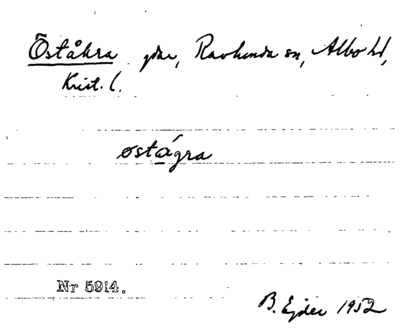 Öståkra gdar, Ravlunda sn, Albo hd,
Krist. l.
ostågra
Nr 5914.
B. Ejder 1952